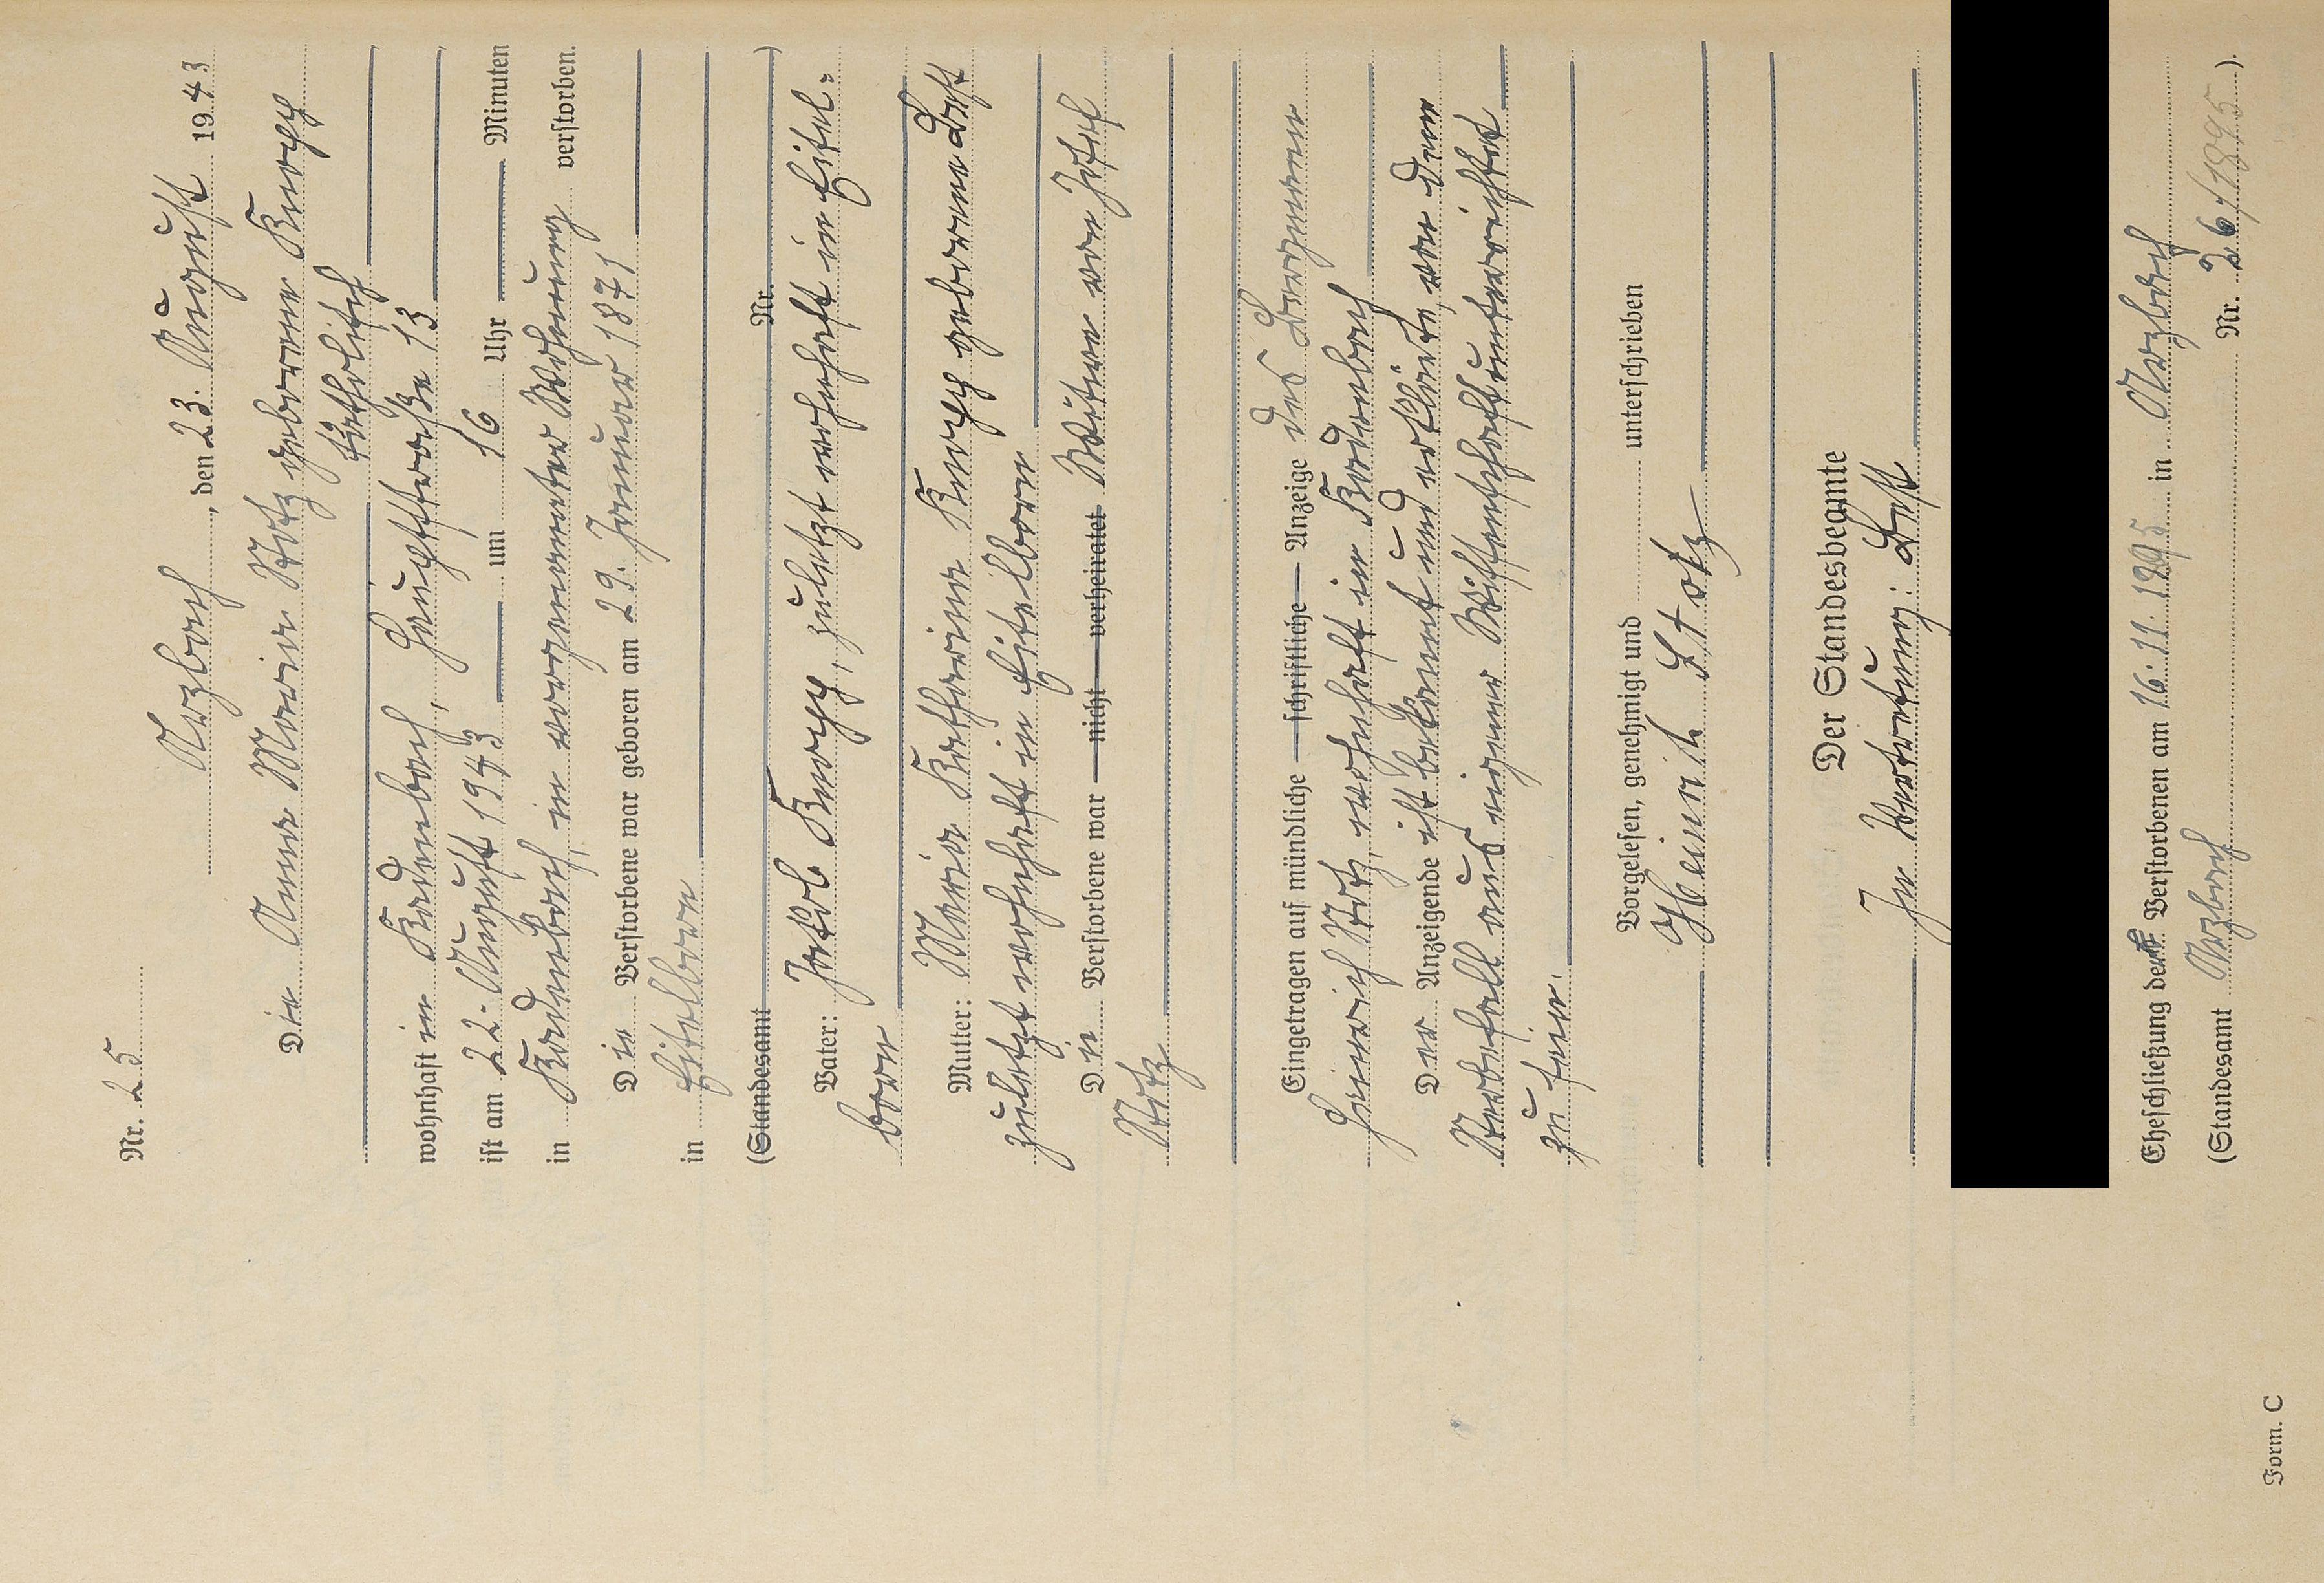 Nr. 25
Arzbach, den 23. August 1943
Die Anna Maria Stotz geborene Knopp
katholisch
wohnhaft in Kadenbach, Hauptstraße 13
ist am 22. August 1943 um 16 Uhr Minuten
in Kadenbach, in vorgenannter Wohnung verstorben.
Die Verstorbene war geboren am 29. Januar 1871
in Eitelborn
(Standesamt Nr. )
Vater: Jakob Knopp, zuletzt wohnhaft in Eitel-
born
Mutter: Maria Katharina Knopp geborene Best
zuletzt wohnhaft in Eitelborn
Die Verstorbene war — nicht — verheiratet Witwe von Josef
Stotz
Eingetragen auf mündliche — schriftliche — Anzeige des Bergmann
Heinrich Stotz, wohnhaft in Kadenbach
Der Anzeigende ist bekannt und erklärte, von dem
Sterbefall aus eigener Wissenschaft unterrichtet
zu sein.
Vorgelesen, genehmigt und unterschrieben
Heinrich Stotz
Der Standesbeamte
In Vertretung: Best
Eheschließung der Verstorbenen am 16.11.1895 in Arzbach
(Standesamt Arzbach Nr. 26/1895).
Form. C